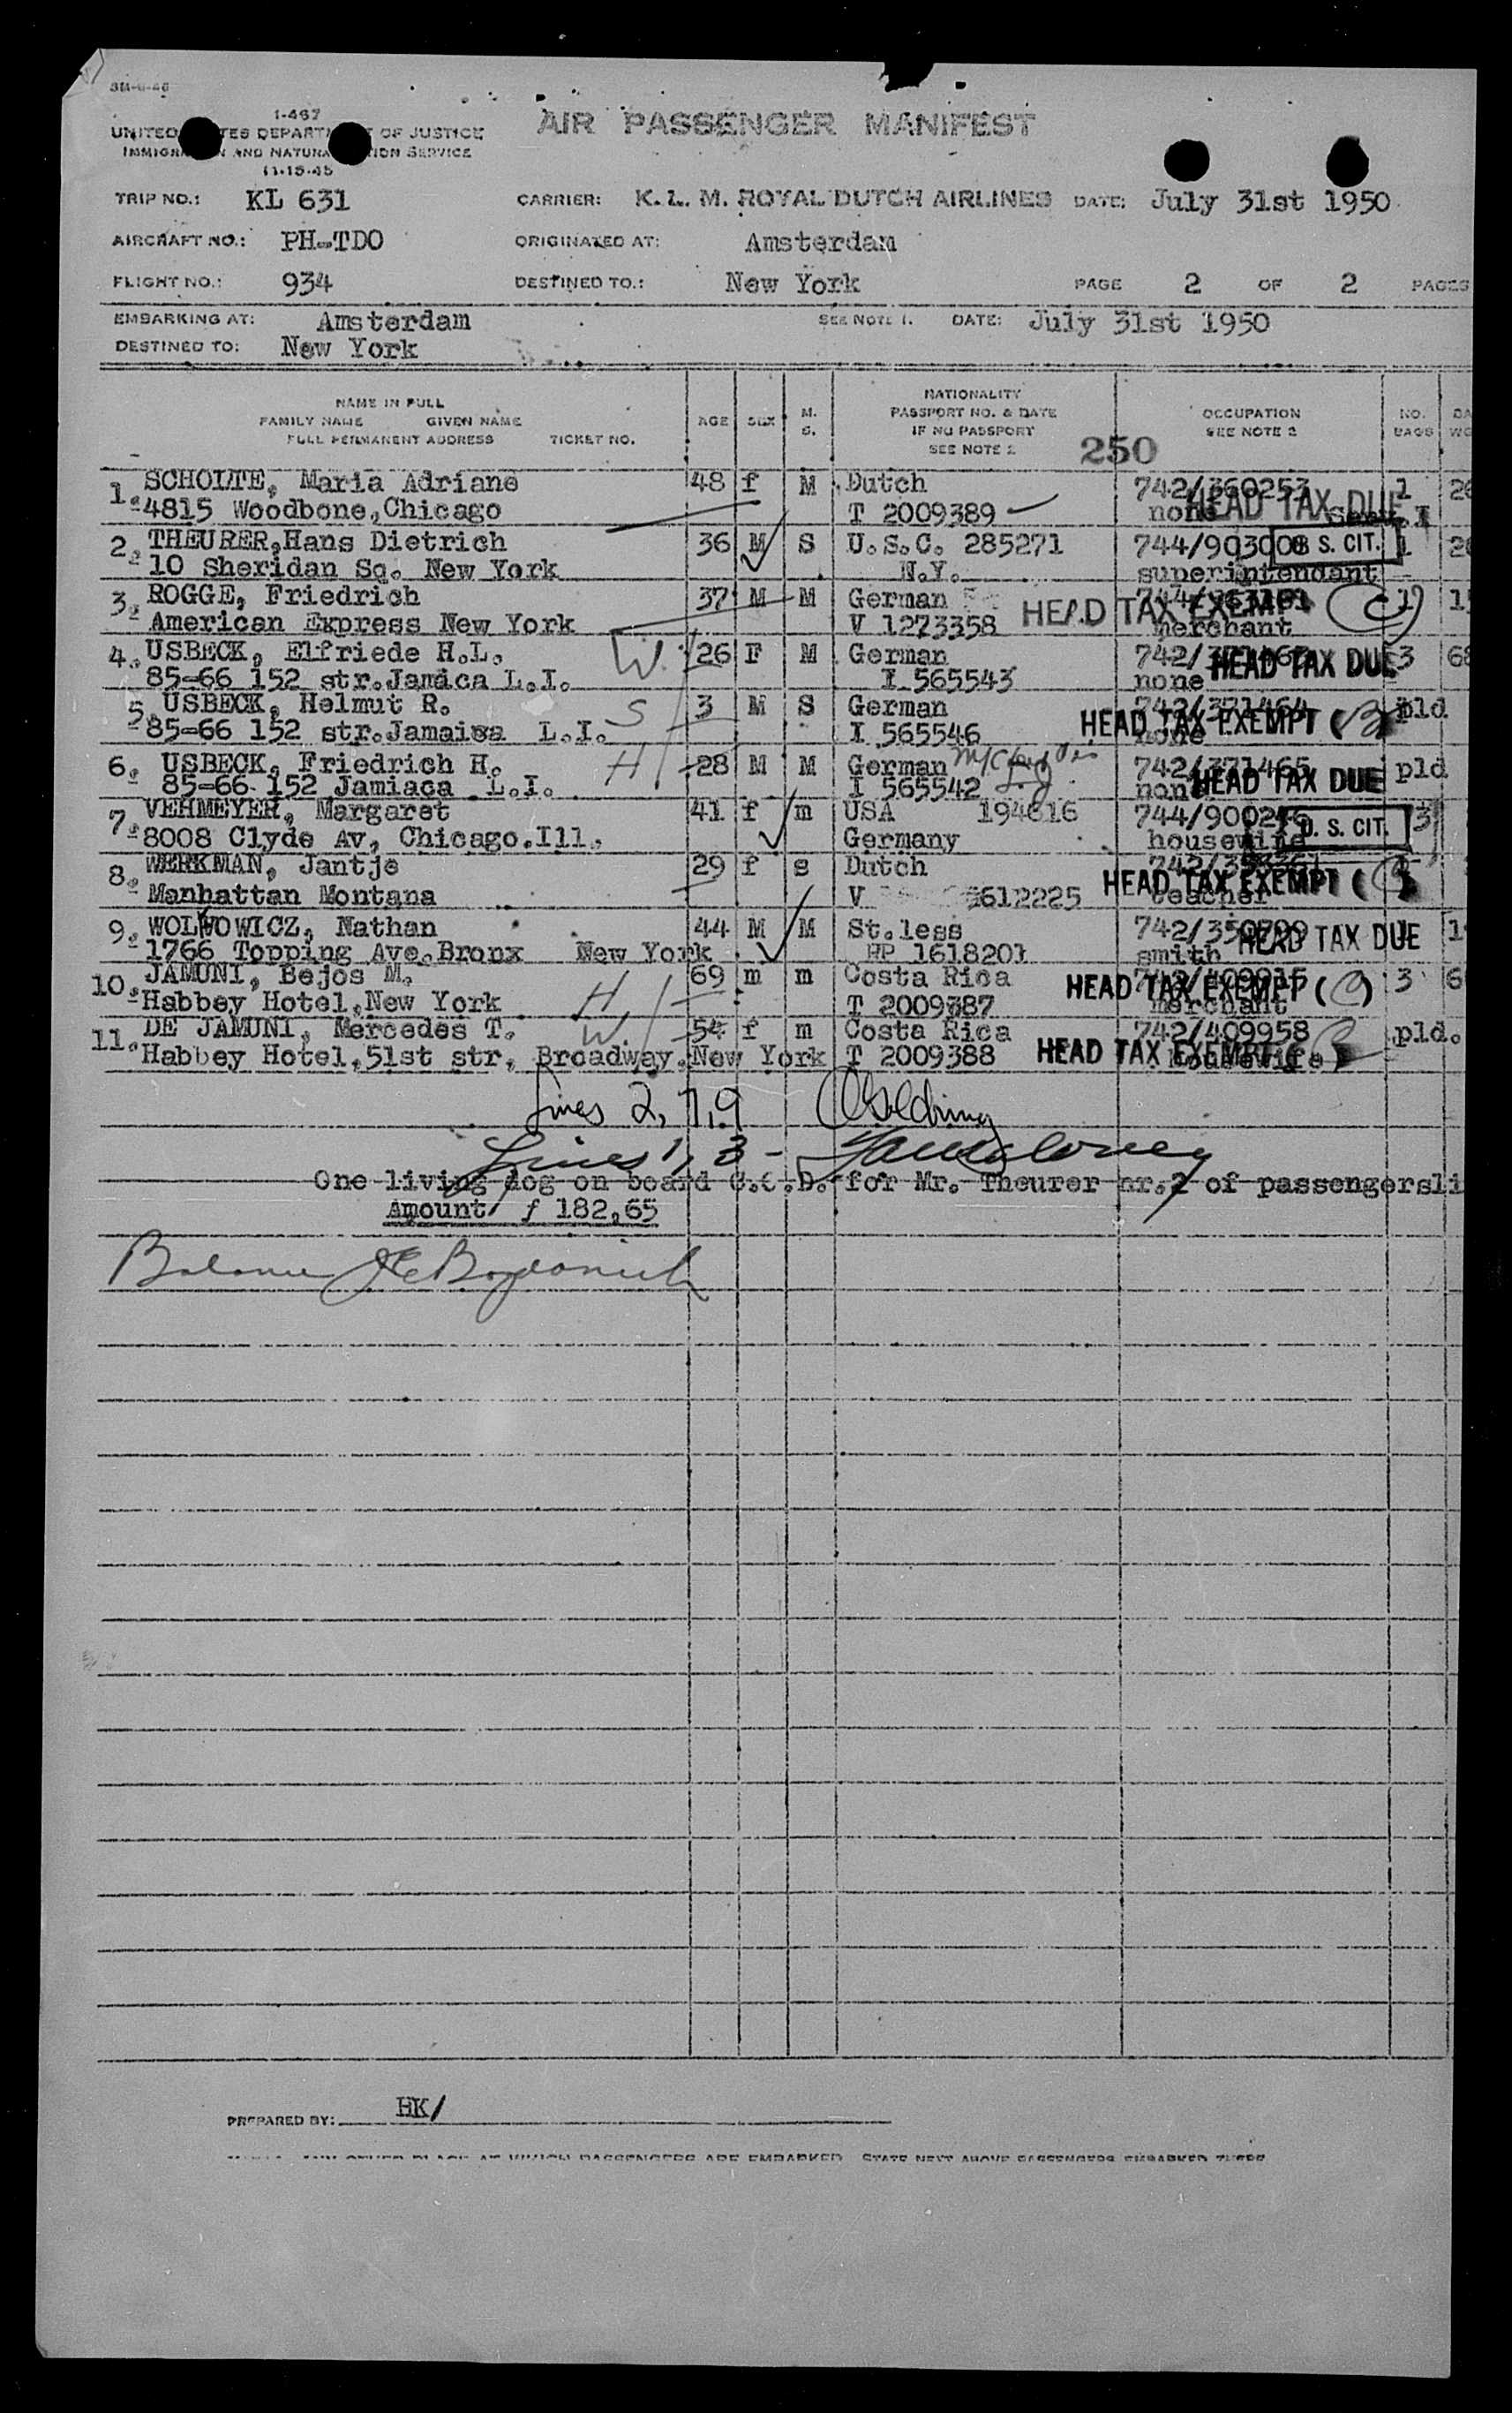 3M-6-46
I-467
UNITED TES DEPART T OF JUSTICE
IMMIGRA N AND NATURA TION SERVICE
11-15-45
AIR PASSENGER MANIFEST
TRIP NO.: KL 631 CARRIER: K. L. M. ROYAL DUTCH AIRLINES DATE: July 31st 1950
AIRCRAFT NO.: PH-TDO ORIGINATED AT: Amsterdam
FLIGHT NO.: 934 DESTINED TO.: New York PAGE 2 OF 2 PAGES
EMBARKING AT: Amsterdam SEE NOTE 1. DATE: July 31st 1950
DESTINED TO: New York
NAME IN FULL
FAMILY NAME GIVEN NAME
FULL PERMANENT ADDRESS TICKET NO.
AGE SEX M. S.
NATIONALITY
PASSPORT NO. & DATE
IF NO PASSPORT
SEE NOTE 2
OCCUPATION
SEE NOTE 2
NO. BAGS
250
1. SCHOLTE, Maria Adriane 48 f M Dutch 742/360253 1
4815 Woodbone, Chicago T 2009389 none HEAD TAX DUE
2. THEURER, Hans Dietrich 36 M S U.S.C. 285271 744/903008 U. S. CIT. 1
10 Sheridan Sq. New York N.Y. superintendant
3. ROGGE, Friedrich 37 M M German HEAD TAX EXEMPT (C) 1
American Express New York V 1273358 merchant
4. USBECK, Elfriede H.L. W. 26 F M German 742/ HEAD TAX DUE 3 68
85-66 152 str. Jamaca L.I. I 565543 none
5. USBECK, Helmut R. S 3 M S German 742/371464 pld
85-66 152 str. Jamaica L.I. I 565546 none HEAD TAX EXEMPT
6. USBECK, Friedrich H. H 28 M M German 742/371465 pld
85-66 152 Jamiaca L.I. I 565542 none HEAD TAX DUE
7. VEHMEYER, Margaret 41 f m USA 194616 744/900246 3
8008 Clyde Av, Chicago.Ill. Germany housewife U. S. CIT.
8. WERKMAN, Jantje 29 f s Dutch
Manhattan Montana V 612225 teacher HEAD TAX EXEMPT
9. WOLWOWICZ, Nathan 44 M M St.less 742/350799 HEAD TAX DUE
1766 Topping Ave. Bronx New York RP 1618201 smith
10. JAMUNI, Bejos M. H 69 m m Costa Rica 742/409915 3
Habbey Hotel, New York T 2009387 merchant HEAD TAX EXEMPT
11. DE JAMUNI, Mercedes T. W 54 f m Costa Rica 742/409958 pld.
Habbey Hotel, 51st str, Broadway. New York T 2009388 housewife HEAD TAX EXEMPT
Lines 2, 7, 9
Lines 1, 3 -
One living dog on board C.O.D. for Mr. Theurer nr.2 of passengersli
Amount f 182,65
Balance
PREPARED BY: HK/